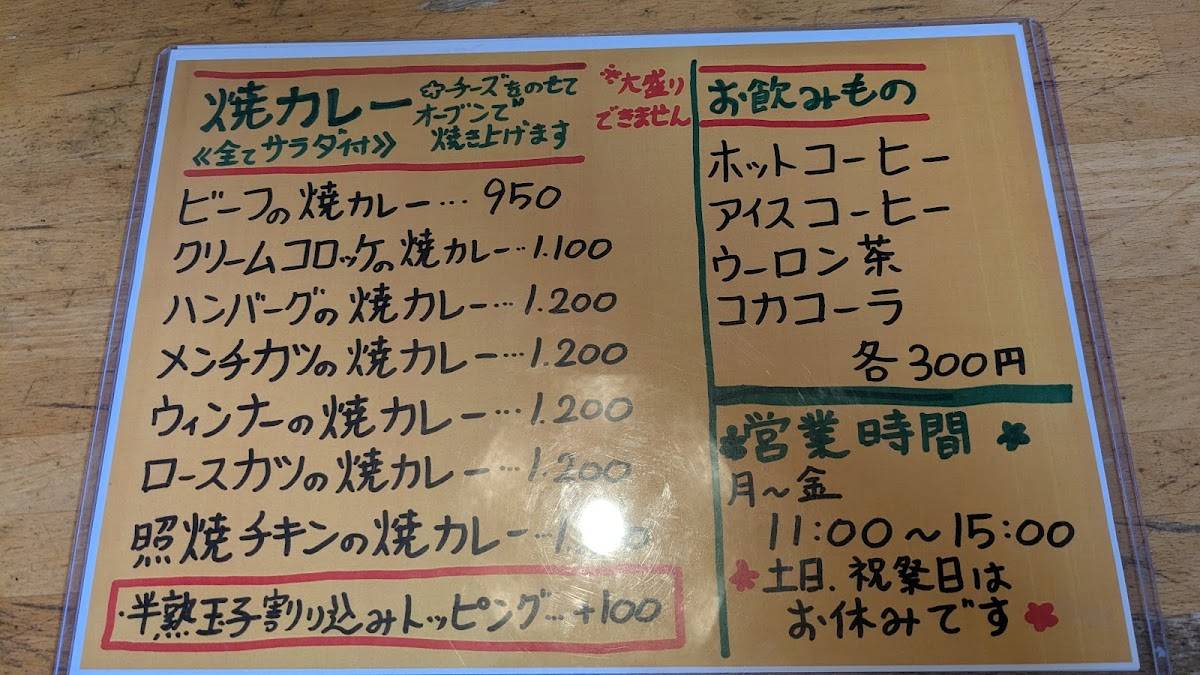 焼カレー
☆チーズをのせて
オーブンで
焼き上げます
《全てサラダ付》
*大盛り
できません
ビーフの焼カレー…950
クリームコロッケの焼カレー…1.100
ハンバーグの焼カレー…1.200
メンチカツの焼カレー…1.200
ウィンナーの焼カレー…1.200
ロースカツの焼カレー…1.200
照焼チキンの焼カレー…
・半熟玉子割り込みトッピング…+100
お飲みもの
ホットコーヒー
アイスコーヒー
ウーロン茶
コカコーラ
各300円
営業時間
月～金
11:00～15:00
土日.祝祭日は
お休みです